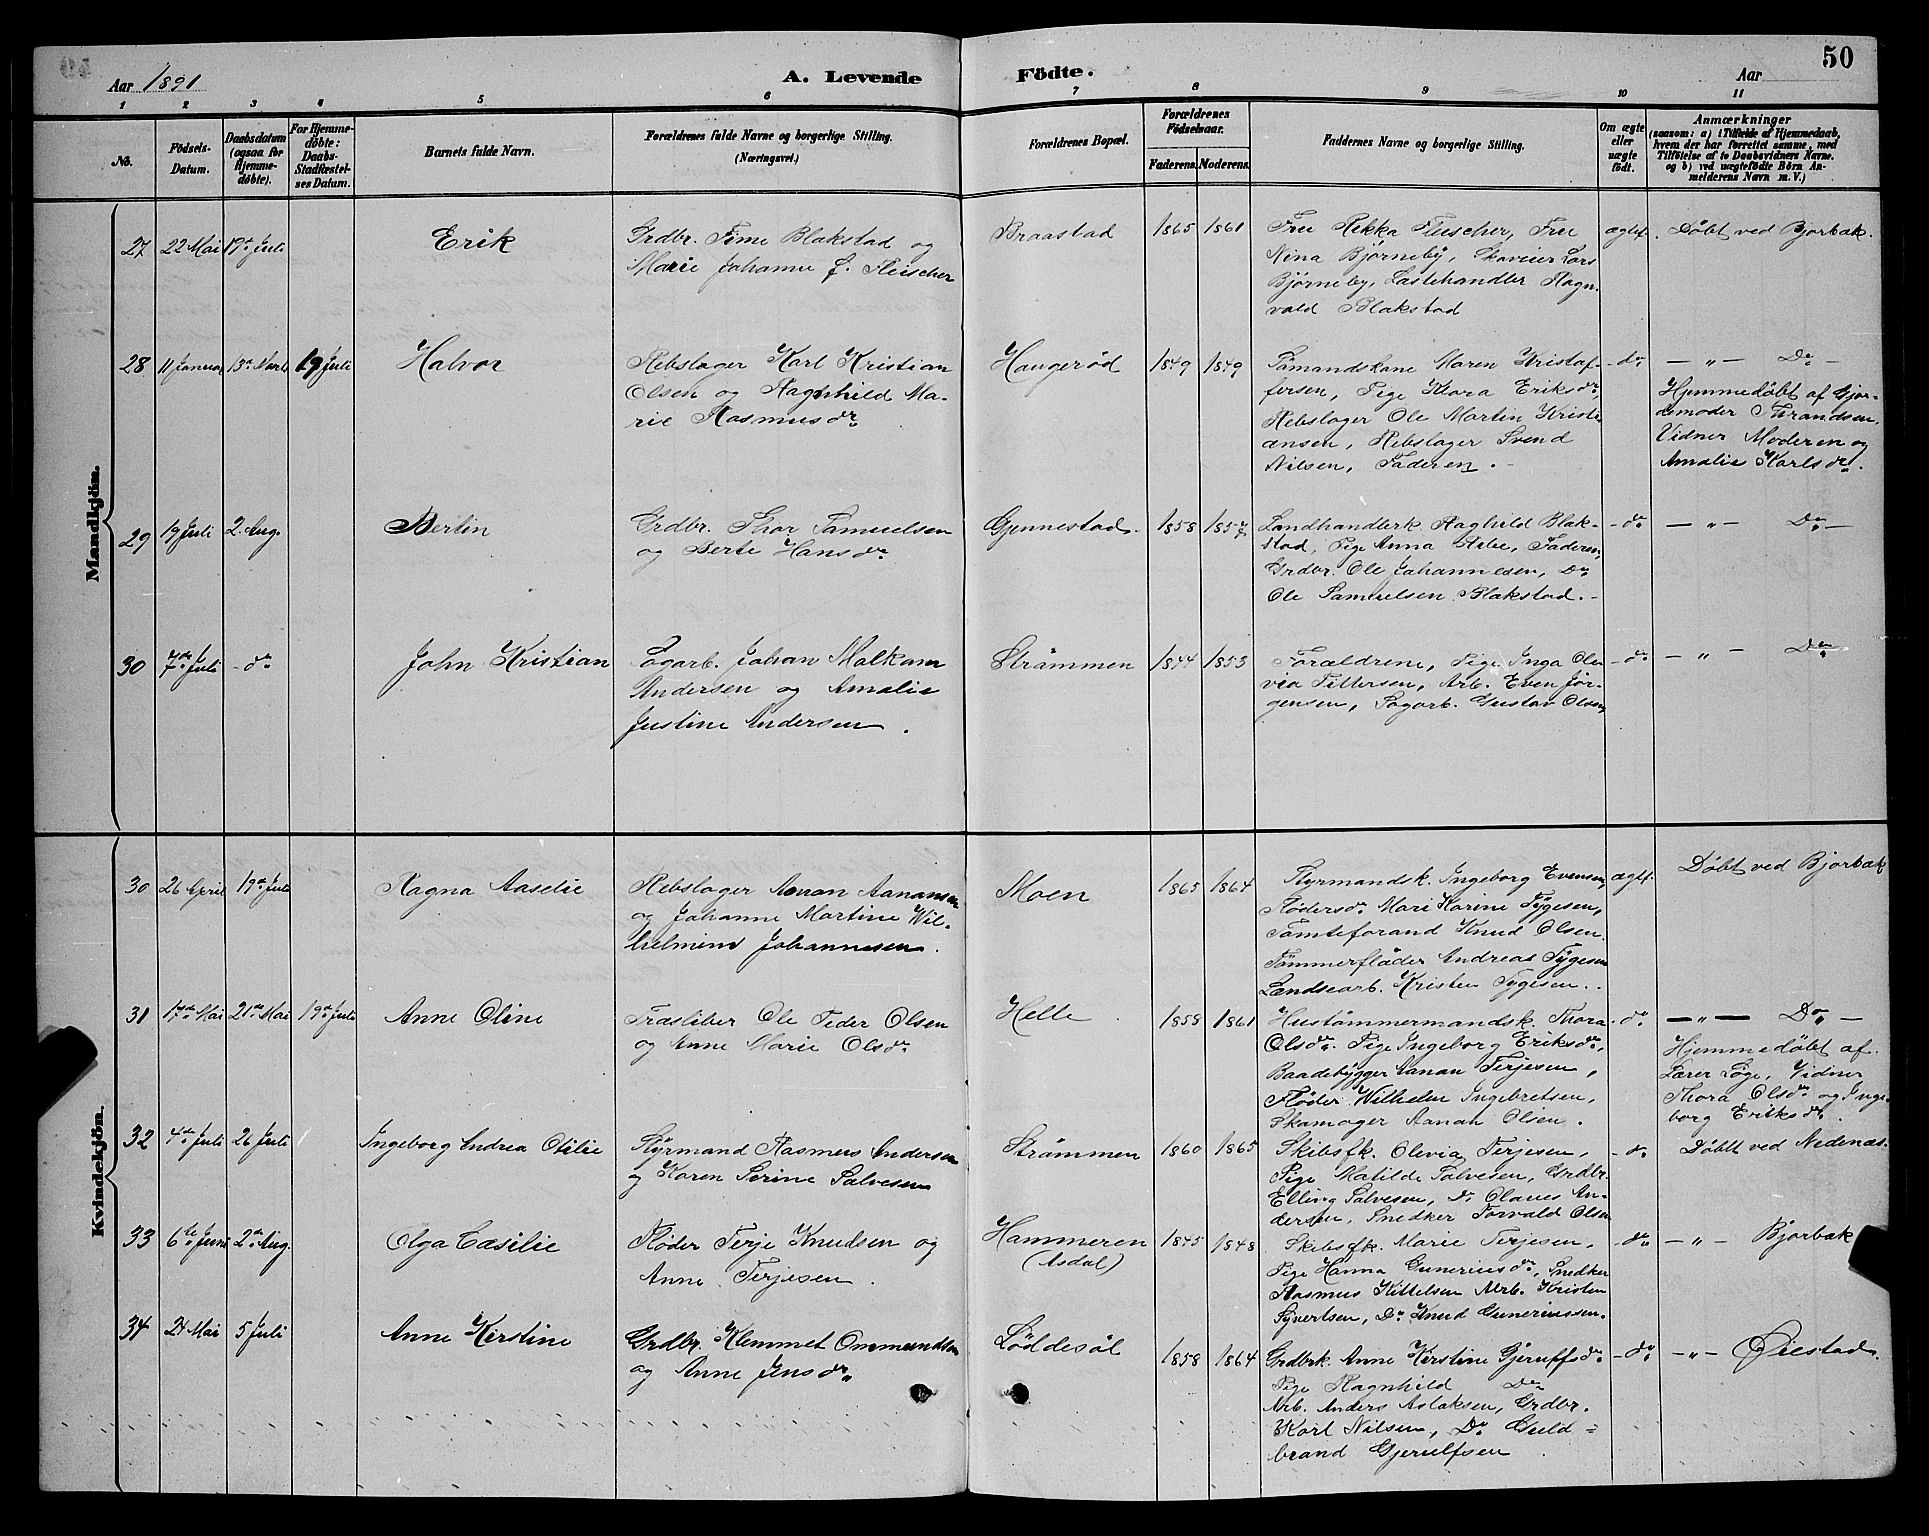 Aar 1891
A. Levende
Födte.
Aar
50
1 2 3 4 5 6 7 8 9 10 11
No.
Födsels-
Datum.
Daabsdatum
(ogsaa for
Hjemme-
döbte).
For Hjemme-
döbte:
Daabs-
Stadfæstel-
ses Datum.
Barnets fulde Navn.
Forældrenes fulde Navne og borgerlige Stilling.
(Næringsvei.)
Forældrenes Bopæl.
Forældrenes
Födselsaar.
Faderens. Moderens.
Faddernes Navne og borgerlige Stilling.
Om ægte
eller
uægte
födt.
Anmærkninger
(saasom: a) i Tilfælde af Hjemmedaab,
hvem der har forrettet samme, med
Tilföielse af to Daabsvidners Navne.
og b) ved uægtefödte Börn An-
melderens Navn m. V.)
Mandkjön.
27 22 Mai 19de Juli
Erik
Grdbr. Time Blakstad og
Marie Johanne f. Fleischer
Braastad
1865 1861
Fru Rekka Fleischer, Fru
Nina Bjørneby, Skoveier Lars
Bjørneby, Lastehandler Ragn-
vald Blakstad
ægtef.
Döbt ved Bjorbæk.
28 11 Januar 13de Marts 19 Juli
Halvor
Rebslager Karl Kristian
Olsen og Ragnhild Ma-
rie Rasmusdr.
Haugerød
1849 1849
Sømandskone Maren Kristof-
fersen, Pige Klara Eriksdr.,
Rebslager Ole Martin Kristi-
ansen, Rebslager Svend
Nilsen, Faderen.
- do
- " - Do -
Hjemmedøbt af Gjor-
demoder Strandsen,
Vidner Moderen og
Amalie Karlsdr.
29 19 Juli 2. Aug.
Bertin
Grdbr. Thor Samuelsen
og Berte Hansdr.
Gjennestad.
1858 1857
Landhandlerk. Raghild Blak-
stad, Pige Anna Arbe, Faderen,
Grdbr. Ole Johannesen, Do
Ole Samuelsen Blakstad.
- do
- " - Do -
30 7de Juli - do
John Kristian
Sagarb. Johan Malkom
Andersen og Amalie
Justine Andersen.
Strömmen
1844 1853
Forældrene, Pige Inga Ole-
via Pettersen, Arb. Even Jør-
gensen, Sagarb. Gustav Olsen,
- do
- " - Do
Kvindekjön.
30 26 April 19de Juli
Ragna Aaselie
Rebslager Aanan Aanansen
og Johanne Martine Wil-
helmine Johannesen.
Moen
1865 1864
Styrmandsk. Ingeborg Evensen,
Flødersdr. Mari Karine Tygesen,
Tomteforand Knud Olsen.
Tømmerfløder Andreas Tygesen
Landsearb. Kristen Tygesen.
ægtef.
Döbt ved Bjorbæk
31 17de Mai 21de Mai 19de Juli
Anne Oline
Træsliber Ole Peder Olsen
og Anne Marie Olsdr.
Helle
1858 1861
Hustømmermandsk. Thora
Olsdr. Pige Ingeborg Eriksdr.,
Baadebygger Aanan Terjesen,
Fløder Wilhelm Ingebretsen,
Skomager Aanan Olsen.
- do
- " - Do -
Hjemmedøbt af
Lærer Løge, Vidner
Thora Olsdr. og Inge-
borg Eriksdr.
32 4de Juli 26 Juli
Ingeborg Andrea Otilie
Styrmand Rasmus Andersen
og Karen Serine Salvesen
Strømmen
1860 1865
Skibsfk. Olevia Terjesen,
Pige Matilde Salvesen, Grdbr.
Elling Salvesen, Do Olaves An-
dersen, Snedker Torvald Olsen
- do
Döbt ved Nedenæs.
33 6te Juni 2de Aug.
Olga Casilie
Fløder Terje Knudsen og
Anne Terjesen.
Hammeren
(Asdal)
1845 1848
Skibsfk. Marie Terjesen,
Pige Hanna Guneriusdr., Snedker
Rasmus Kittelsen Arb. Kristen
Syvertsen, Do Knud Gunerinssen.
- do
- " - Bjorbæk
34 24 Mai 5 Juli
Anne Kirstine
Grdbr. Klemmet Ommundsen
og Anne Jensdr.
Løddesøl
1858 1864
Grdbrk. Anne Kirstine Gjeruffsdr.
Pige Ragnhild Do
Arb. Anders Aslaksen, Grdbr.
Karl Nilsen, Do Guld-
brand Gjerulfsen
- do
- " - Øiestad.